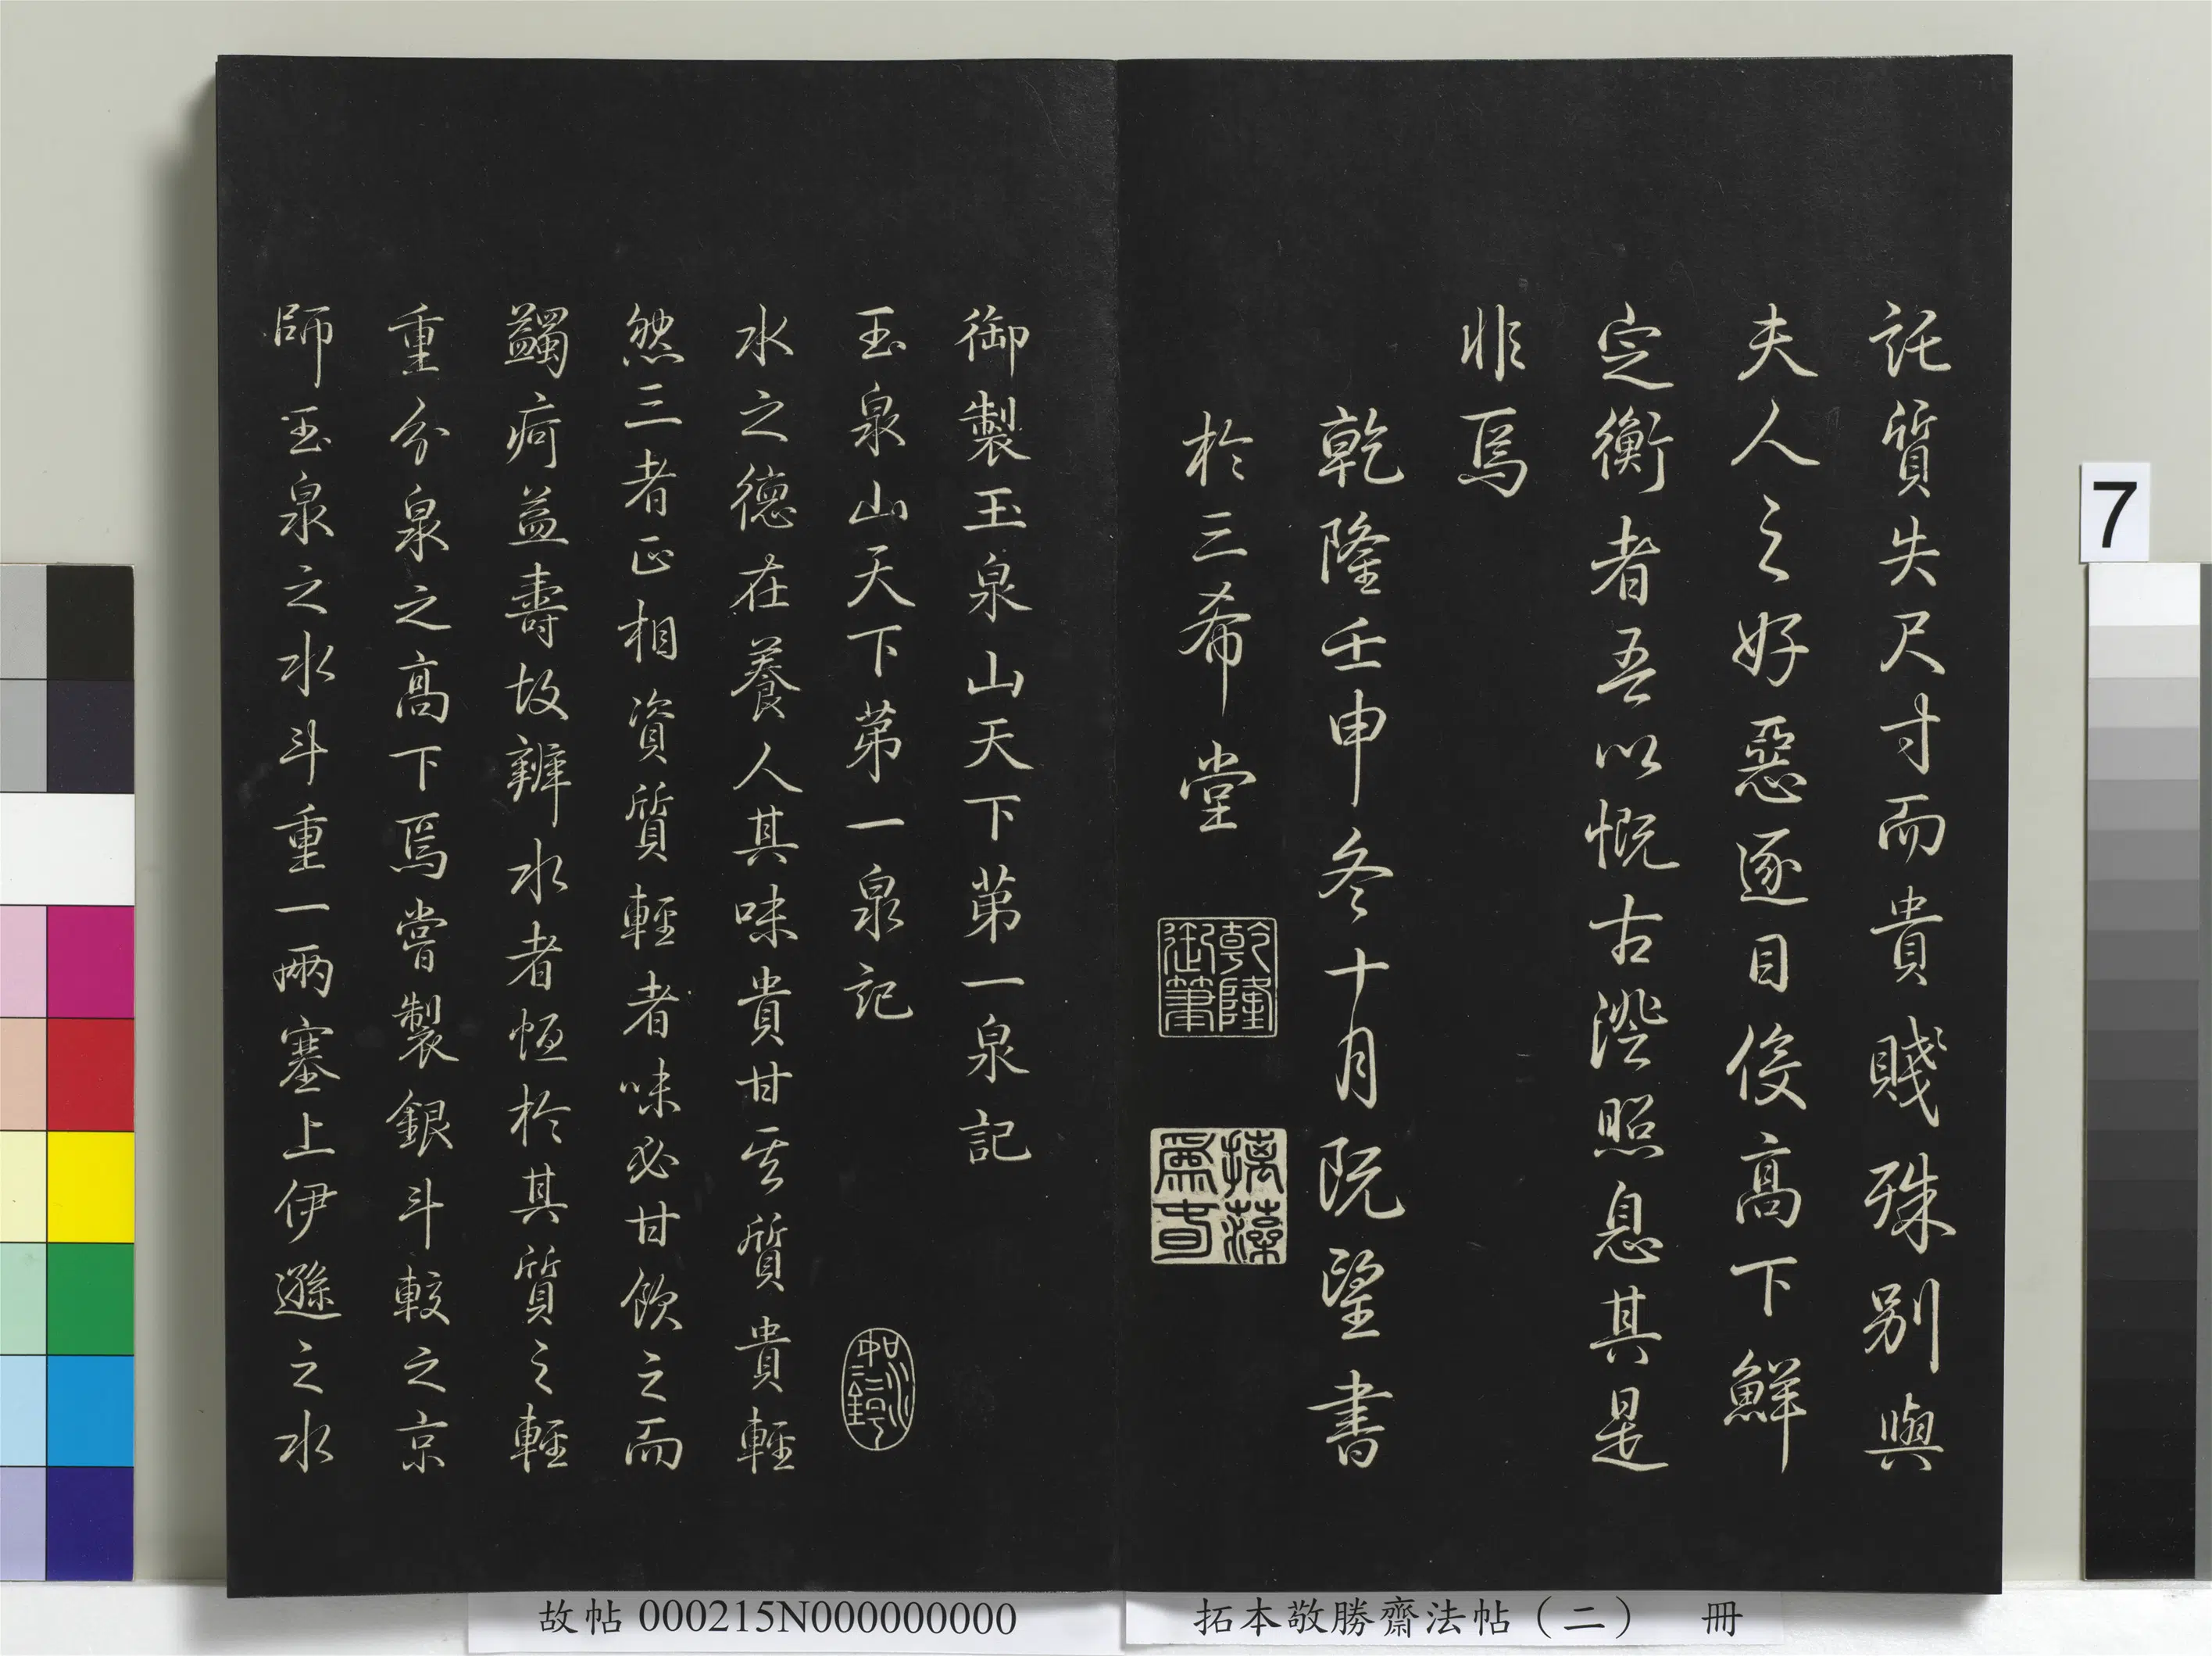 託質失尺寸而貴賤殊別與
夫人之好惡逐目高下鮮
定衡者吾以慨古澄照息其是
非焉
乾隆壬申冬十月既望書
於三希堂
乾隆御筆
摛藻為春
御製玉泉山天下第一泉記
玉泉山天下第一泉記
水之德在養人其味貴甘其質貴輕
然三者正相資質輕者味必甘飲之而
蠲疴益壽故辨水者恆於其質之輕
重分泉之高下焉嘗製銀斗較之京
師玉泉之水斗重一兩塞上伊遜之水
7
故帖 000215N000000000
拓本敬勝齋法帖（二） 冊